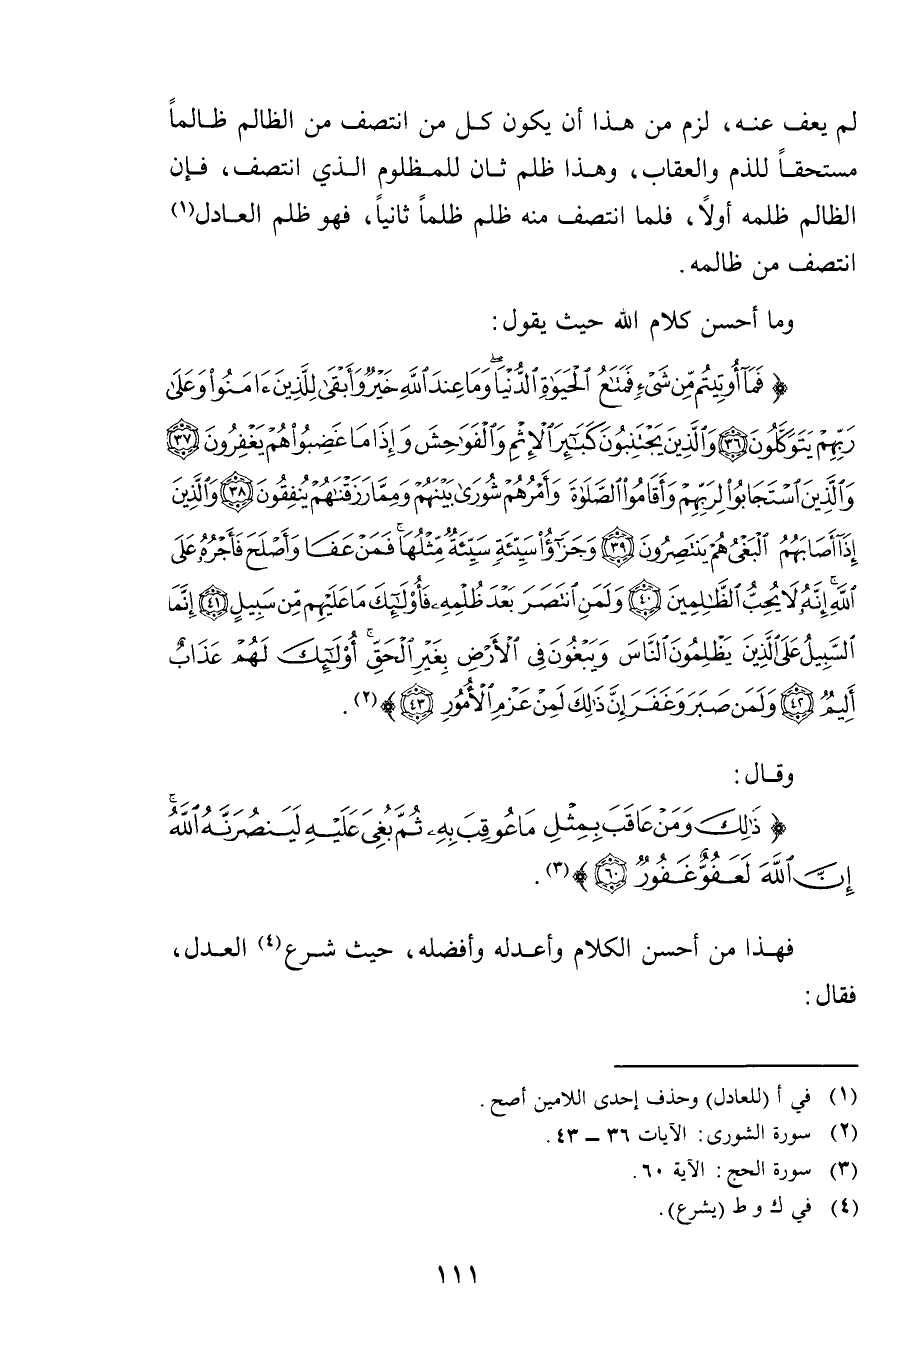 لم يعف عنه، لزم من هذا أن يكون كل من انتصف من الظالم ظالماً
مستحقاً للذم والعقاب، وهذا ظلم ثان للمظلوم الذي انتصف، فإن
الظالم ظلمه أولاً، فلما انتصف منه ظلم ظلماً ثانياً، فهو ظلم العادل(١)
انتصف من ظالمه.
وما أحسن كلام الله حيث يقول:
﴿ فَمَآ أُوتِيتُم مِّن شَىْءٍ فَمَتَٰعُ ٱلْحَيَوٰةِ ٱلدُّنْيَا ۖ وَمَا عِندَ ٱللَّهِ خَيْرٌ وَأَبْقَىٰ لِلَّذِينَ ءَامَنُوا۟ وَعَلَىٰ
رَبِّهِمْ يَتَوَكَّلُونَ ٣٦ وَٱلَّذِينَ يَجْتَنِبُونَ كَبَٰٓئِرَ ٱلْإِثْمِ وَٱلْفَوَٰحِشَ وَإِذَا مَا غَضِبُوا۟ هُمْ يَغْفِرُونَ ٣٧
وَٱلَّذِينَ ٱسْتَجَابُوا۟ لِرَبِّهِمْ وَأَقَامُوا۟ ٱلصَّلَوٰةَ وَأَمْرُهُمْ شُورَىٰ بَيْنَهُمْ وَمِمَّا رَزَقْنَٰهُمْ يُنفِقُونَ ٣٨ وَٱلَّذِينَ
إِذَآ أَصَابَهُمُ ٱلْبَغْىُ هُمْ يَنتَصِرُونَ ٣٩ وَجَزَٰٓؤُا۟ سَيِّئَةٍ سَيِّئَةٌ مِّثْلُهَا ۖ فَمَنْ عَفَا وَأَصْلَحَ فَأَجْرُهُۥ عَلَى
ٱللَّهِ ۚ إِنَّهُۥ لَا يُحِبُّ ٱلظَّٰلِمِينَ ٤٠ وَلَمَنِ ٱنتَصَرَ بَعْدَ ظُلْمِهِۦ فَأُو۟لَٰٓئِكَ مَا عَلَيْهِم مِّن سَبِيلٍ ٤١ إِنَّمَا
ٱلسَّبِيلُ عَلَى ٱلَّذِينَ يَظْلِمُونَ ٱلنَّاسَ وَيَبْغُونَ فِى ٱلْأَرْضِ بِغَيْرِ ٱلْحَقِّ ۚ أُو۟لَٰٓئِكَ لَهُمْ عَذَابٌ
أَلِيمٌ ٤٢ وَلَمَن صَبَرَ وَغَفَرَ إِنَّ ذَٰلِكَ لَمِنْ عَزْمِ ٱلْأُمُورِ ٤٣ ﴾(٢).
وقال:
﴿ ذَٰلِكَ وَمَنْ عَاقَبَ بِمِثْلِ مَا عُوقِبَ بِهِۦ ثُمَّ بُغِىَ عَلَيْهِ لَيَنصُرَنَّهُ ٱللَّهُ ۚ
إِنَّ ٱللَّهَ لَعَفُوٌّ غَفُورٌ ٦٠ ﴾(٣).
فهذا من أحسن الكلام وأعدله وأفضله، حيث شرع(٤) العدل،
فقال:
(١) في أ (للعادل) وحذف إحدى اللامين أصح.
(٢) سورة الشورى: الآيات ٣٦ – ٤٣.
(٣) سورة الحج: الآية ٦٠.
(٤) في ك و ط (يشرع).
١١١